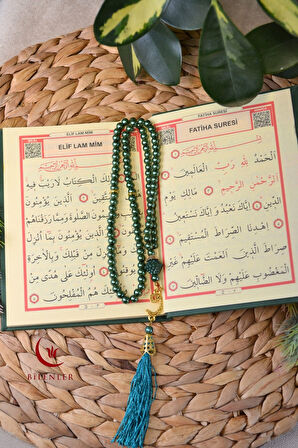 FATİHA SURESİ
FATİHA SURESİ
اَلْحَمْدُ لِلّٰهِ رَبِّ الْعَالَمِينَ
اَلرَّحْمٰنِ الرَّحِيمِ مَالِكِ يَوْمِ
الدِّينِ اِيَّاكَ نَعْبُدُ وَاِيَّاكَ نَسْتَعِينُ
اِهْدِنَا الصِّرَاطَ الْمُسْتَقِيمَ
صِرَاطَ الَّذِينَ اَنْعَمْتَ عَلَيْهِمْ غَيْرِ
الْمَغْضُوبِ عَلَيْهِمْ وَلَا الضَّالِّينَ
ELİF LAM MİM
ELİF LAM MİM
ذٰلِكَ الْكِتَابُ لَا رَيْبَ فِيهِ
اَلَّذِينَ يُؤْمِنُونَ
الصَّلٰوةَ وَمِمَّا رَزَقْنَاهُمْ
يُؤْمِنُونَ بِمَا اُنْزِلَ
مِنْ قَبْلِكَ وَبِالْاٰخِرَةِ
اُولٰئِكَ عَلٰى هُدًى مِنْ
هُمُ الْمُفْلِحُونَ
BİDENLER